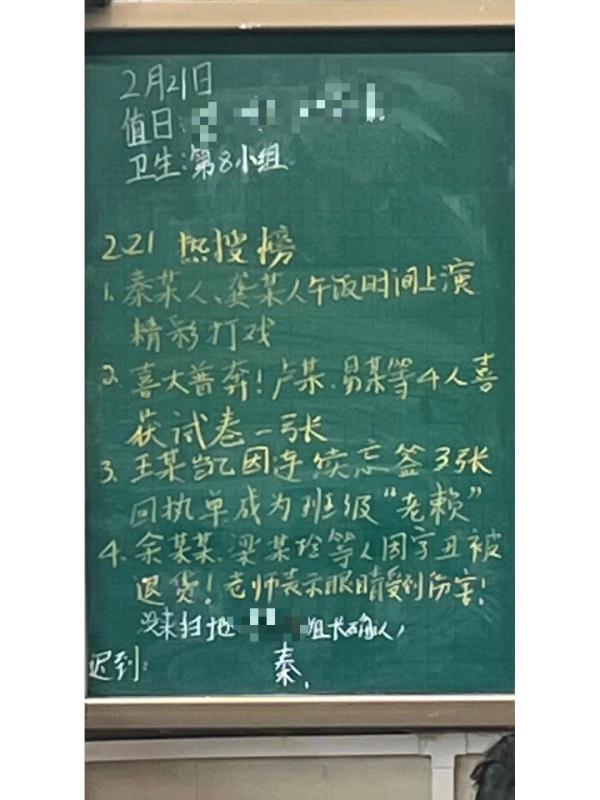 2月21日
值日:
卫生:第8小组
2.21 热搜榜
1.秦某人、龚某人午饭时间上演
精彩打戏
2.喜大普奔!卢某.易某等4人喜
获试卷一张
3.王某凯因连续忘签3张
回执单成为班级“老赖”
4.余某某.梁某珍等人因字丑被
退货!老师表示眼睛受到伤害!
没来扫地 组长确认,
迟到: 秦,